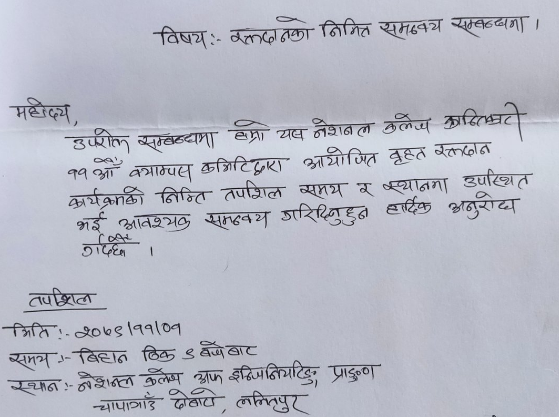 विषय:- रक्तदानको निमित समन्वय सम्बन्धमा ।
महोदय,
उपरोक्त सम्बन्धमा हाम्रो यस नेशनल कलेज
११ औं क्याम्पस कमिटिद्वारा आयोजित वृहत रक्तदान
कार्यक्रमको निमित तपशिल समय र स्थानमा उपस्थित
भई आवश्यक समन्वय गरिदिनुहुन हार्दिक अनुरोध
गर्दछौं ।
तपशिल
मिति :- २०७९/११/०१
समय :- बिहान ठिक ९ बजेबाट
स्थान :- नेशनल कलेज अफ इन्जिनियरिङ्ग, प्राङ्गण
चापागाउँ दोबाटो, ललितपुर